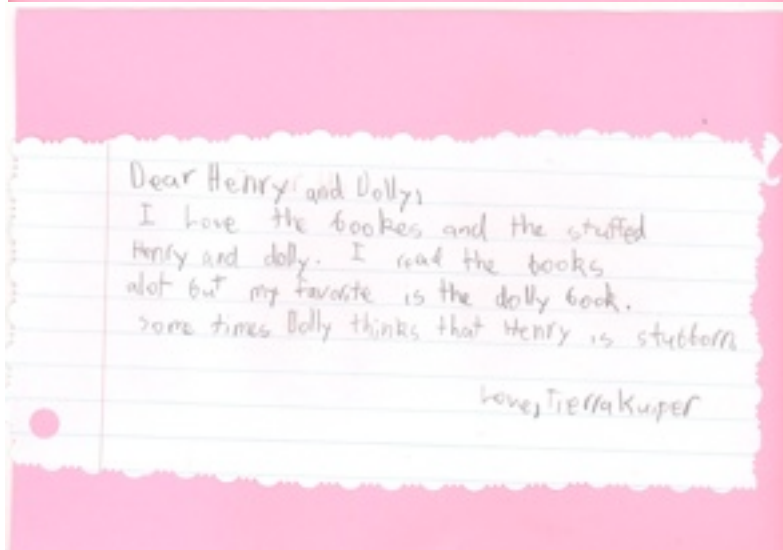 Dear Henry and Dolly,
I Love the bookes and the stuffed
Henry and dolly. I read the books
alot but my favorite is the dolly book.
some times Dolly thinks that Henry is stubborn
Love, Tierra Kuiper